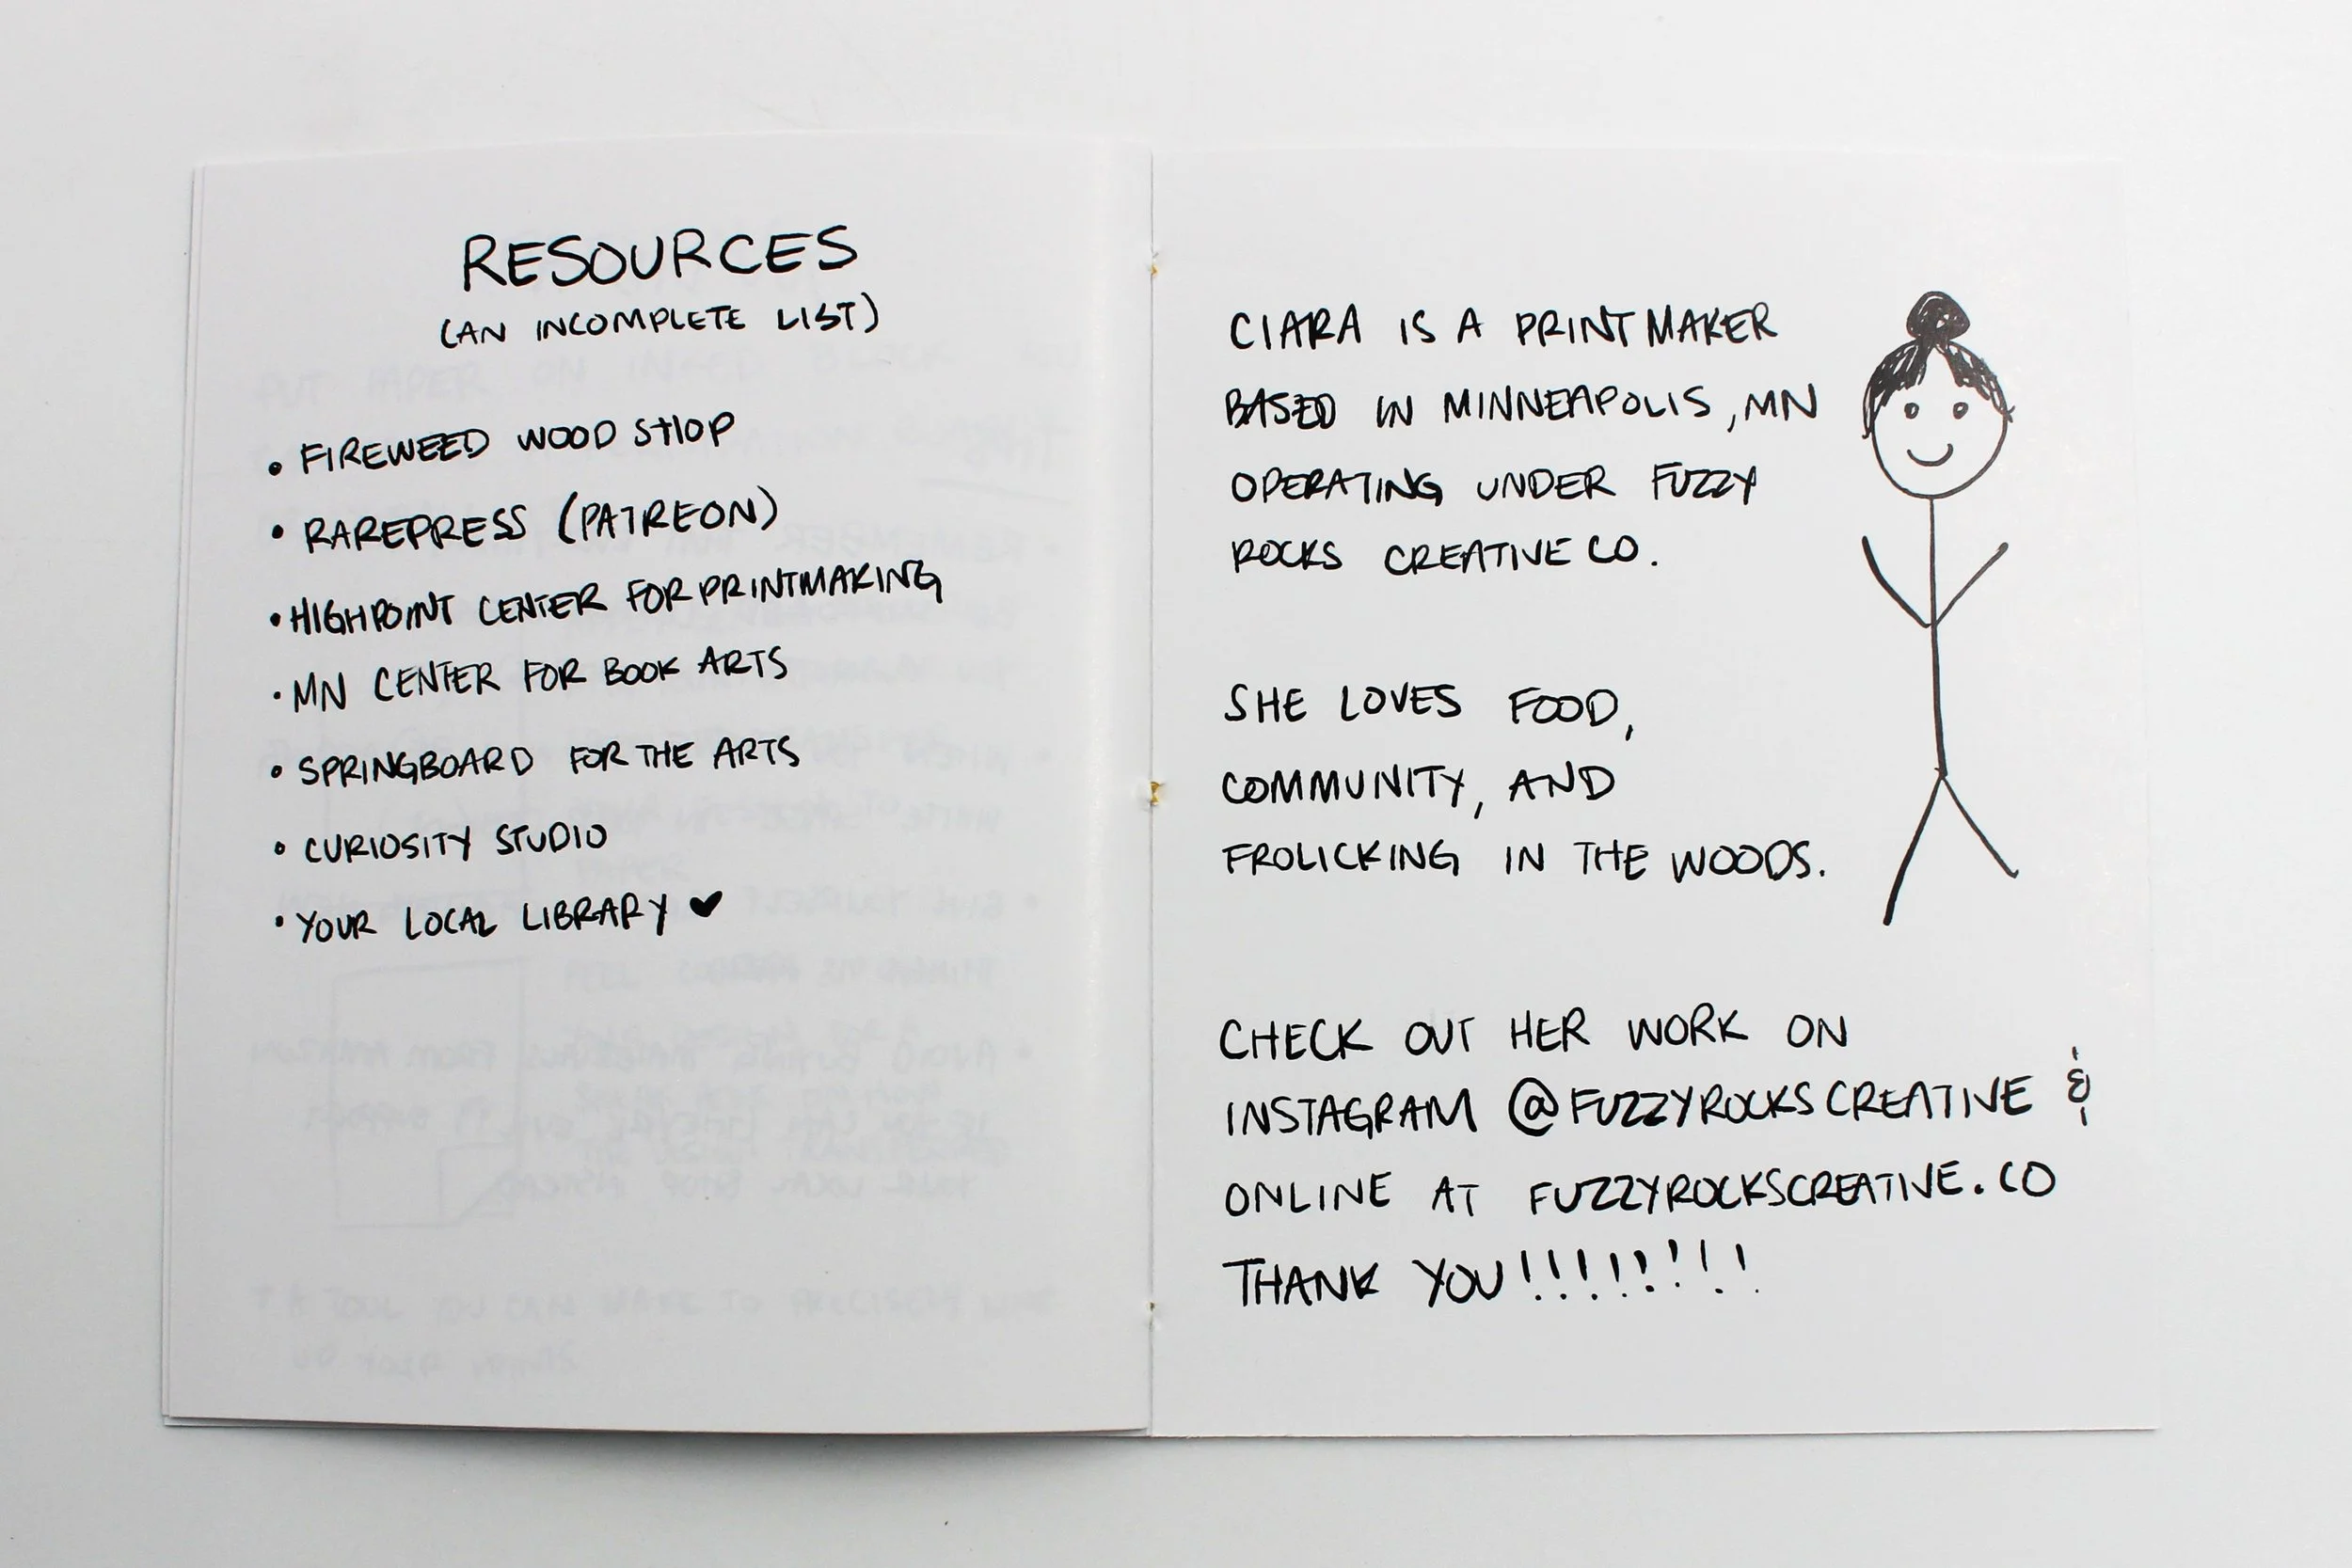 RESOURCES
(AN INCOMPLETE LIST)
• FIREWEED WOOD SHOP
• RAREPRESS (PATREON)
• HIGHPOINT CENTER FOR PRINTMAKING
• MN CENTER FOR BOOK ARTS
• SPRINGBOARD FOR THE ARTS
• CURIOSITY STUDIO
• YOUR LOCAL LIBRARY ♥
CIARA IS A PRINTMAKER
BASED IN MINNEAPOLIS, MN
OPERATING UNDER FUZZY
ROCKS CREATIVE CO.
SHE LOVES FOOD,
COMMUNITY, AND
FROLICKING IN THE WOODS.
CHECK OUT HER WORK ON
INSTAGRAM @FUZZYROCKSCREATIVE &
ONLINE AT FUZZYROCKSCREATIVE.CO
THANK YOU!!!!!!!!!